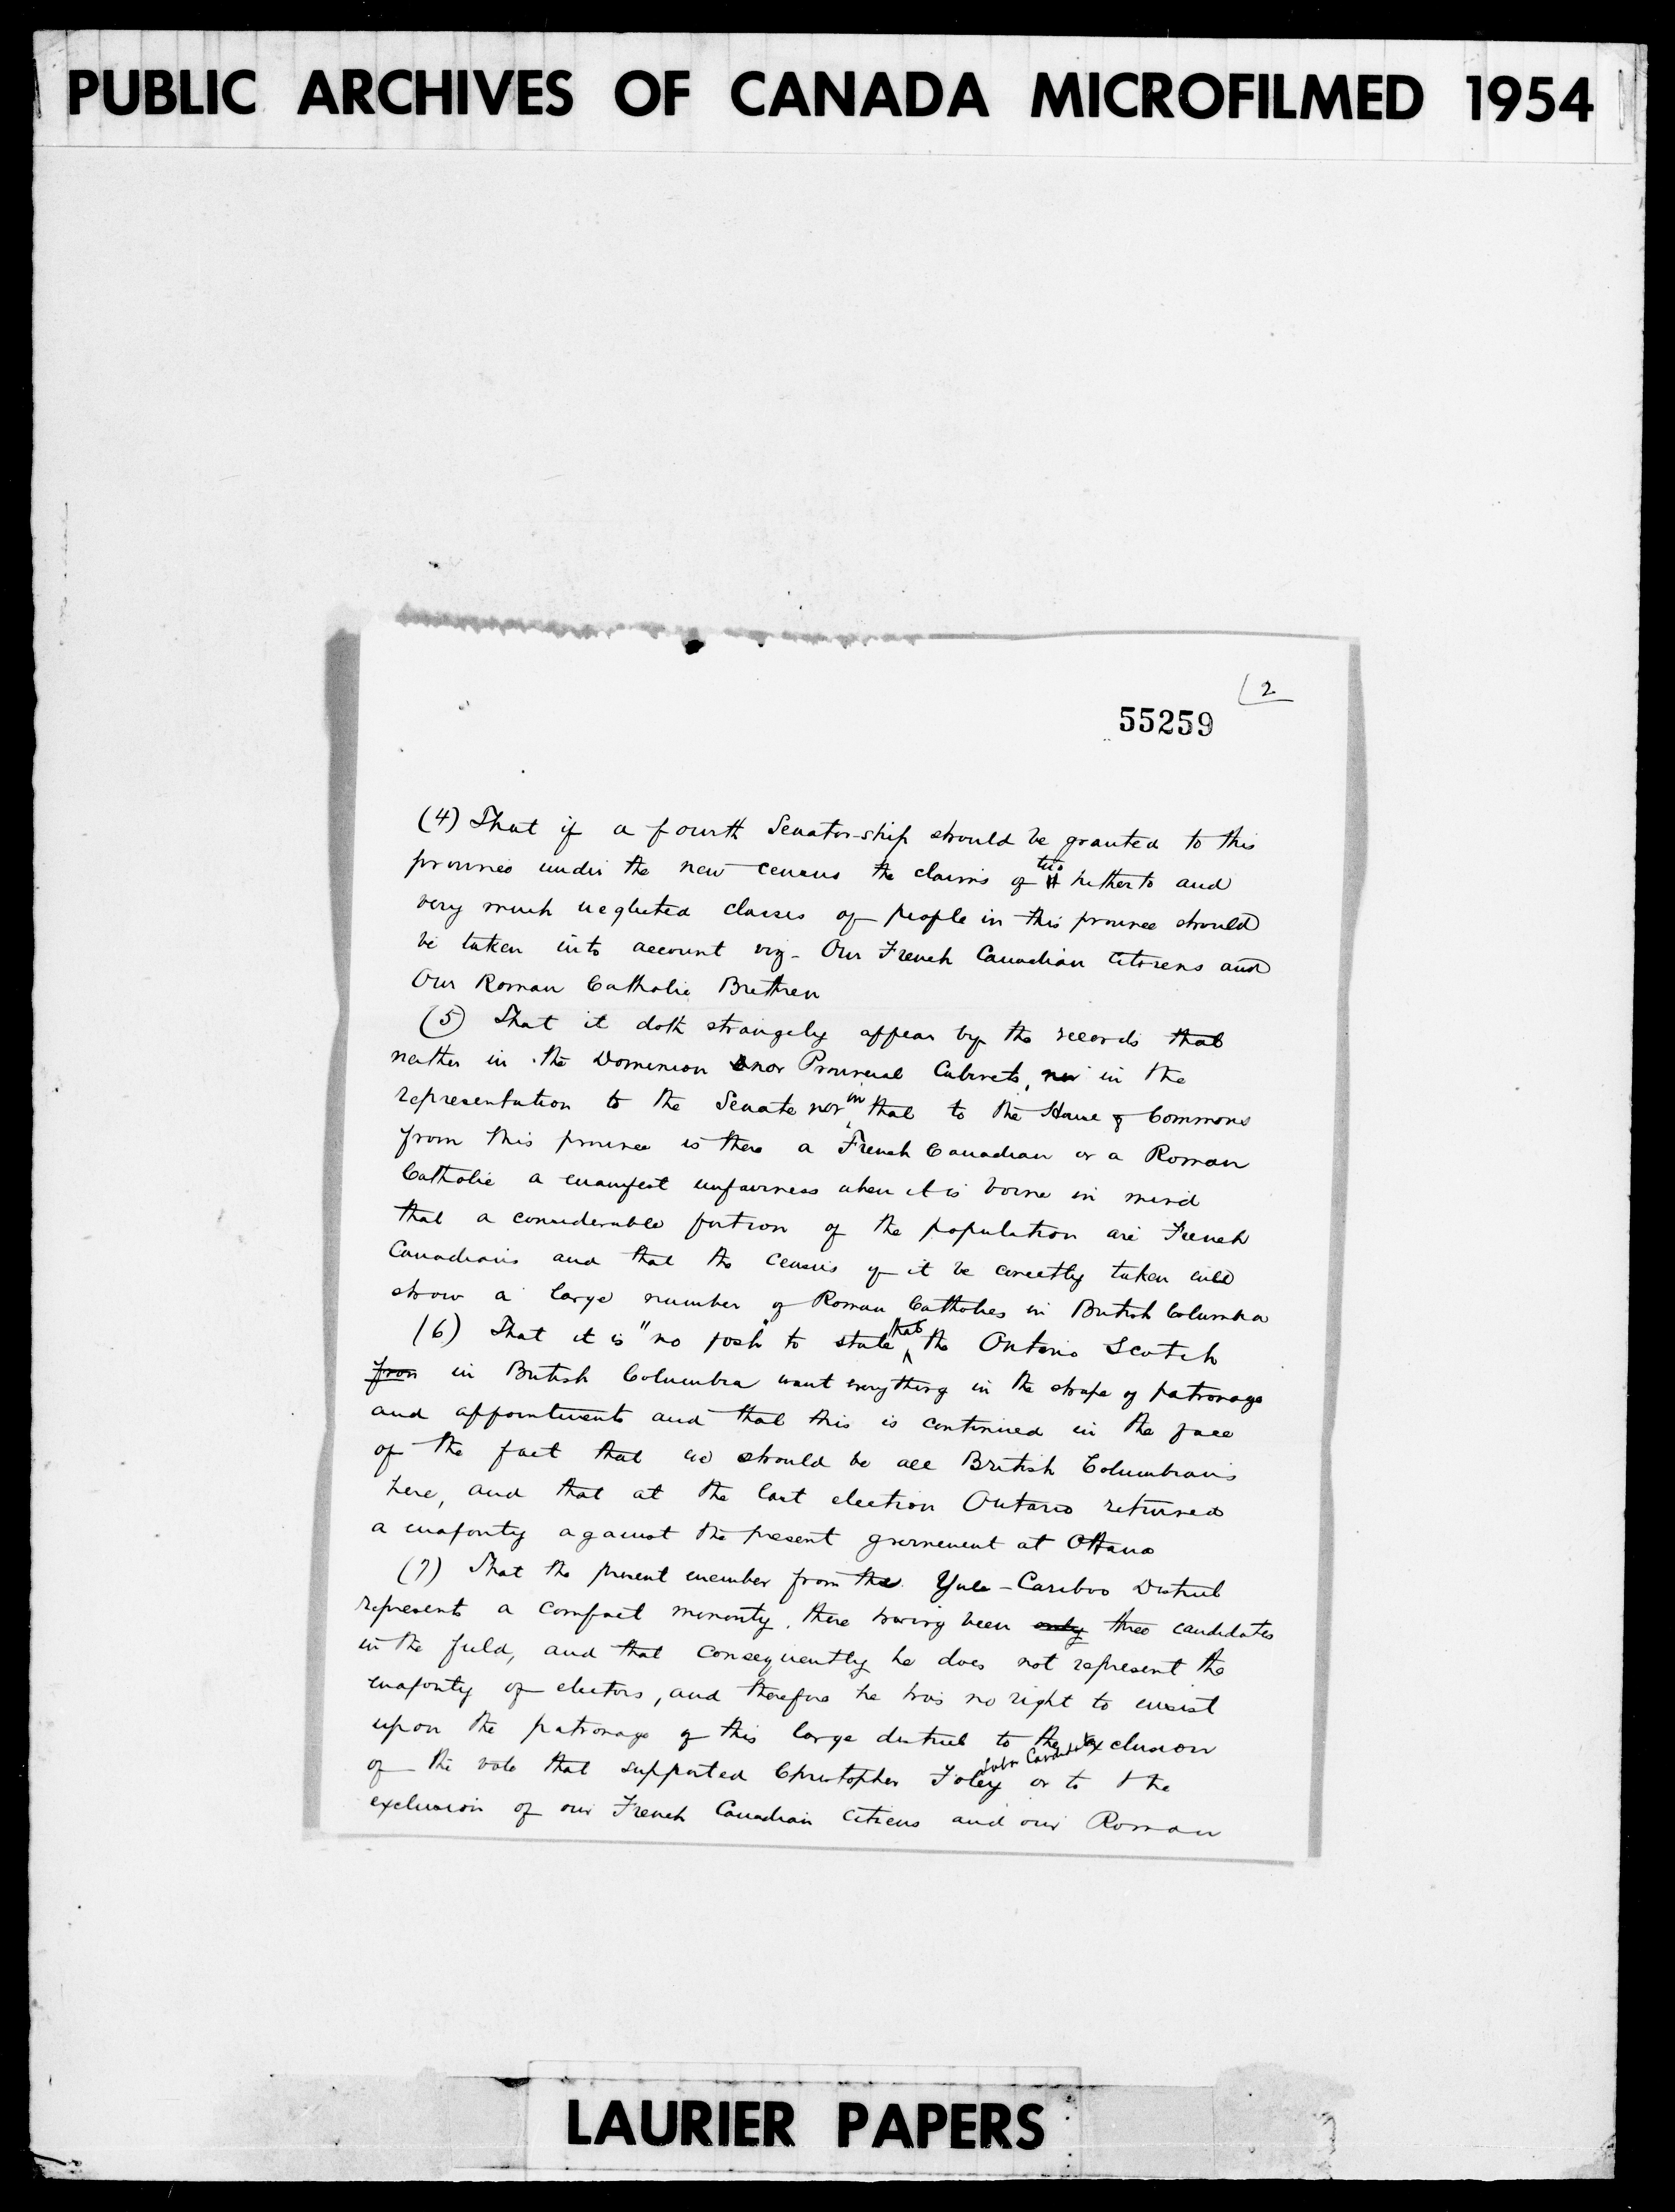 PUBLIC ARCHIVES OF CANADA MICROFILMED 1954
2
55259
(4) That if a fourth Senator-ship should be granted to this
province under the new census the claims of two hitherto and
very much neglected classes of people in this province should
be taken into account viz - Our French Canadian Citizens and
Our Roman Catholic Brethren
(5) That it doth strangely appear by the records that
neither in the Dominion nor Provincial Cabinets, nor in the
representation to the Senate nor in that to the House of Commons
from this province is there a French Canadian or a Roman
Catholic a manifest unfairness when it is borne in mind
that a considerable portion of the population are French
Canadians and that the census if it be correctly taken will
show a large number of Roman Catholics in British Columbia
(6) That it is "no josh" to state that the Ontario Scotch
from in British Columbia want everything in the shape of patronage
and appointments and that this is continued in the face
of the fact that we should be all British Columbians
here, and that at the last election Ontario returned
a majority against the present government at Ottawa
(7) That the present member from the Yale-Cariboo District
represents a compact minority, there having been only three candidates
in the field, and that consequently he does not represent the
majority of electors, and therefore he has no right to insist
upon the patronage of this large district to the exclusion
of the vote that supported Christopher Foley Labor Candidate or to the
exclusion of our French Canadian Citizens and our Roman
LAURIER PAPERS